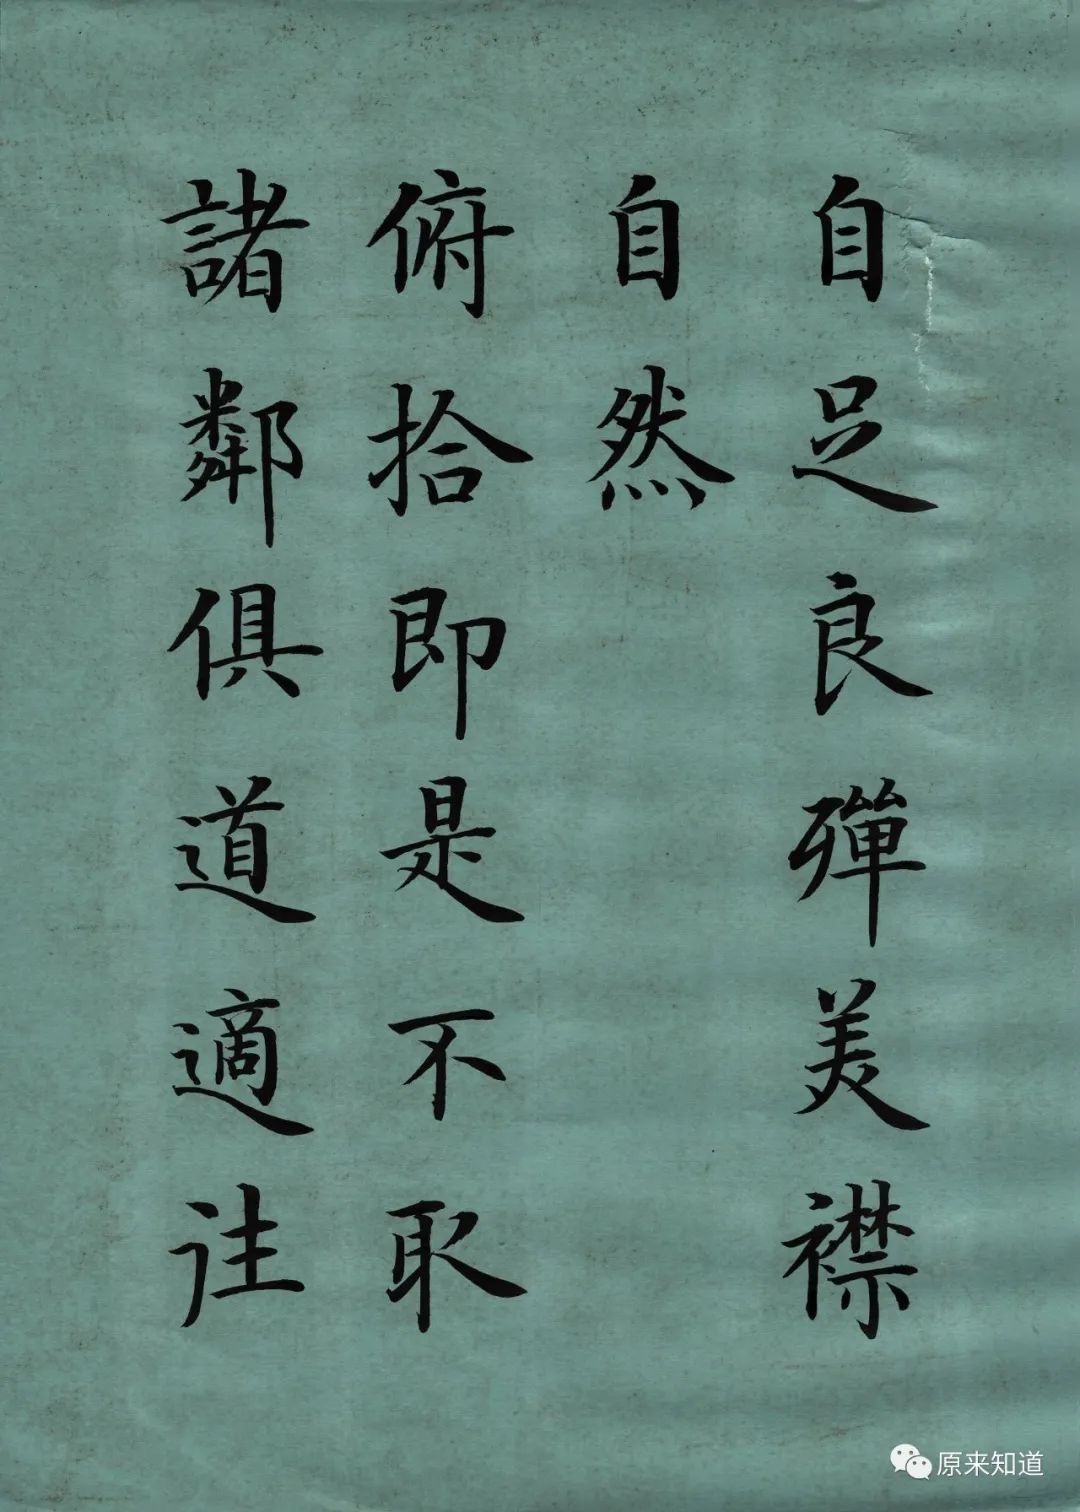 自足良殫美襟
自然
俯拾即是不取
諸鄰俱道適往
原来知道